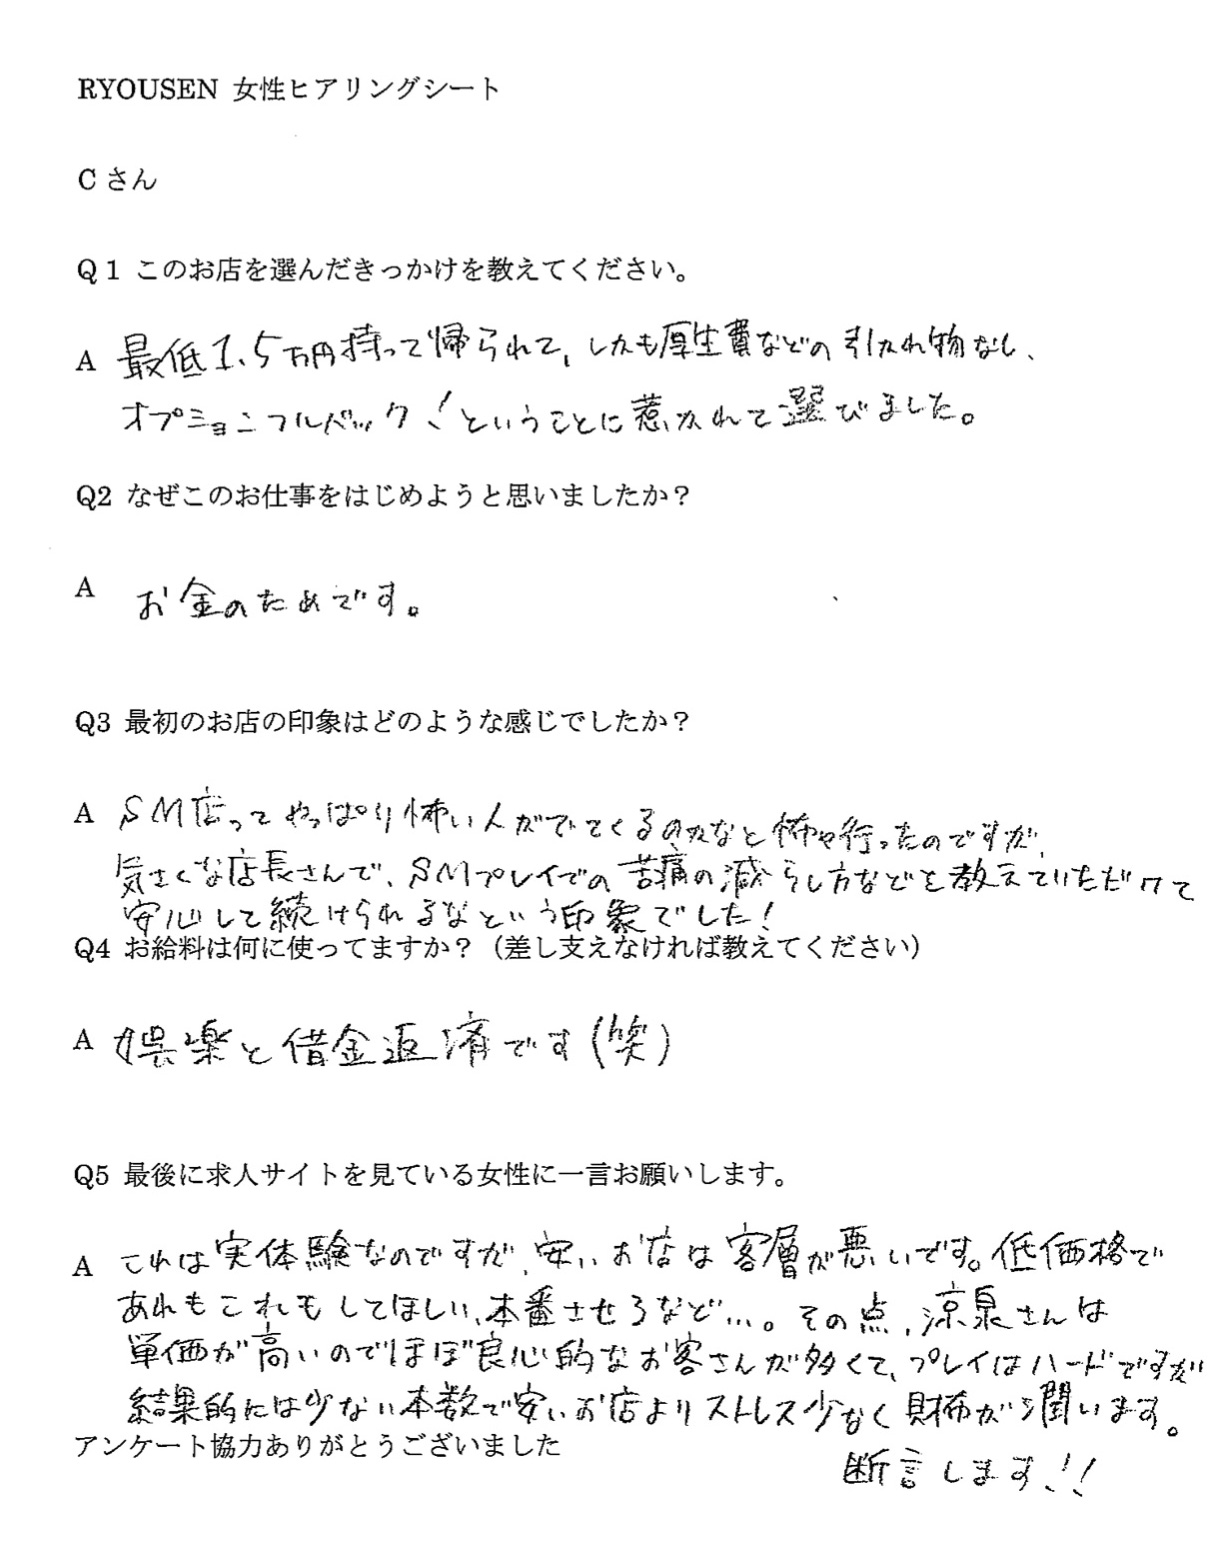 RYOUSEN 女性ヒアリングシート
Cさん
Q1 このお店を選んだきっかけを教えてください。
A 最低1.5万円持って帰られて、しかも厚生費などの引かれ物なし、
オプションフルバック!ということに惹かれて選びました。
Q2 なぜこのお仕事をはじめようと思いましたか?
A お金のためです。
Q3 最初のお店の印象はどのような感じでしたか?
A SM店ってやっぱり怖い人がでてくるのかなと怖々行ったのですが、
気さくな店長さんで、SMプレイでの苦痛の減らし方などを教えていただけて
安心して続けられるなという印象でした!
Q4 お給料は何に使ってますか?(差し支えなければ教えてください)
A 娯楽と借金返済です(笑)
Q5 最後に求人サイトを見ている女性に一言お願いします。
A これは実体験なのですが、安いお店は客層が悪いです。低価格で
あれもこれもしてほしい、本番させろなど…。その点、涼泉さんは
単価が高いのでほぼ良心的なお客さんが多くて、プレイはハードですが
結果的には少ない本数で安いお店よりストレス少なく財布が潤います。
断言します!!
アンケート協力ありがとうございました